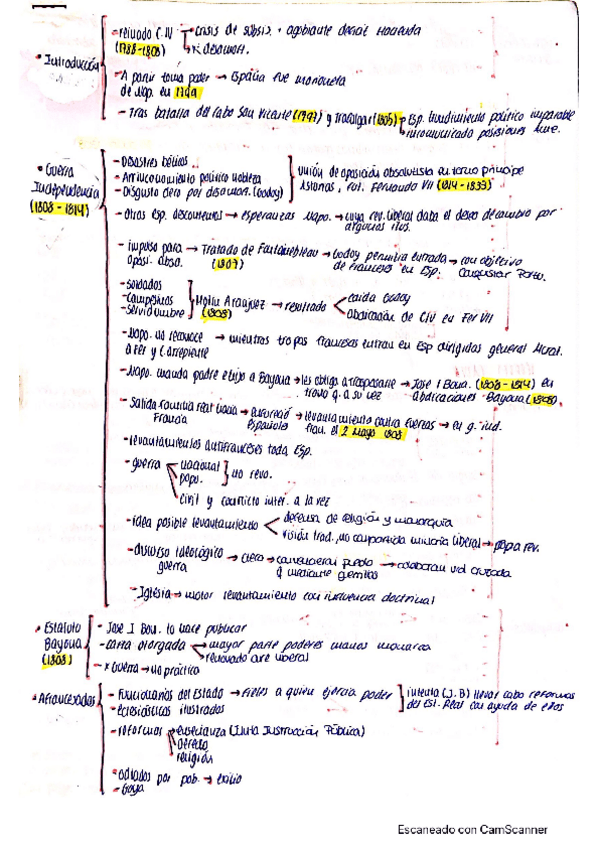 • Introducción
- reinado C.IV → crisis de subsis. + agobiante deuda Hacienda
(1788-1808) → ri desamort.
- A partir toma poder → España fue marioneta
de Nap. en 1799
- Tras batalla del Cabo San Vicente (1797) y Trafalgar (1805) → Esp. hundimiento político imparable
incomunicado posesiones Ame.
• Guerra
Independencia
(1808-1814)
- Desastres bélicos
- Arrinconamiento político nobleza
- Disgusto clero por desamor. (Godoy)
unión de oposición absolutista en torno príncipe
Asturias, fut. Fernando VII (1814-1833)
- Otros esp. descontentos → esperanzas Napo. → cuya rev. liberal daba el deseo de cambio por
algunos ilus.
- impulso para → Tratado de Fontainebleau → Godoy permitía entrada → con objetivo
oposi. abso. (1807) de franceses en Esp. conquistar Portu.
- Soldados
- Campesinos
- Servidumbre
Motín Aranjuez → resultado
(1808)
caída Godoy
abdicación de CIV en Fer VII
- Napo. no reconoce → mientras tropas francesas entran en Esp dirigidas general Murat.
a Fer y C. arrepiente
- Napo. manda padre e hijo a Bayona → les obliga a traspasarle → José I Bona. (1808-1814) en
trono q. a su vez abdicaciones Bayona (1808)
- Salida familia real hacia → enfureció → levantamiento contra fuerzas → en g. ind.
Francia españoles fran. el 2 Mayo 1808
- levantamientos antifranceses toda Esp.
- guerra
nacional
popu.
no revo.
civil y conflicto inter. a la vez
- idea posible levantamiento
defensa de religión y monarquía
visión trad., no compartida minoría liberal → rev.
- discurso ideológico → clero → convencerá pueblo → colaboran
guerra
- Iglesia → motor levantamiento con influencia doctrinal
• Estatuto
Bayona
(1808)
- José I Bon. lo hace publicar
- carta otorgada
mayor parte poderes manos monarca
renovado aire liberal
- x Guerra → no práctica
• Afrancesados
- Funcionarios del Estado → Fieles a quien ejercía poder
- Eclesiásticos ilustrados
intenta (J.B) llevar cabo reformas
del Est. Real con ayuda de ellos
- reformas
enseñanza (Junta Instrucción Pública)
Derecho
religión
- odiados por pob. → exilio
- Goya
Escaneado con CamScanner